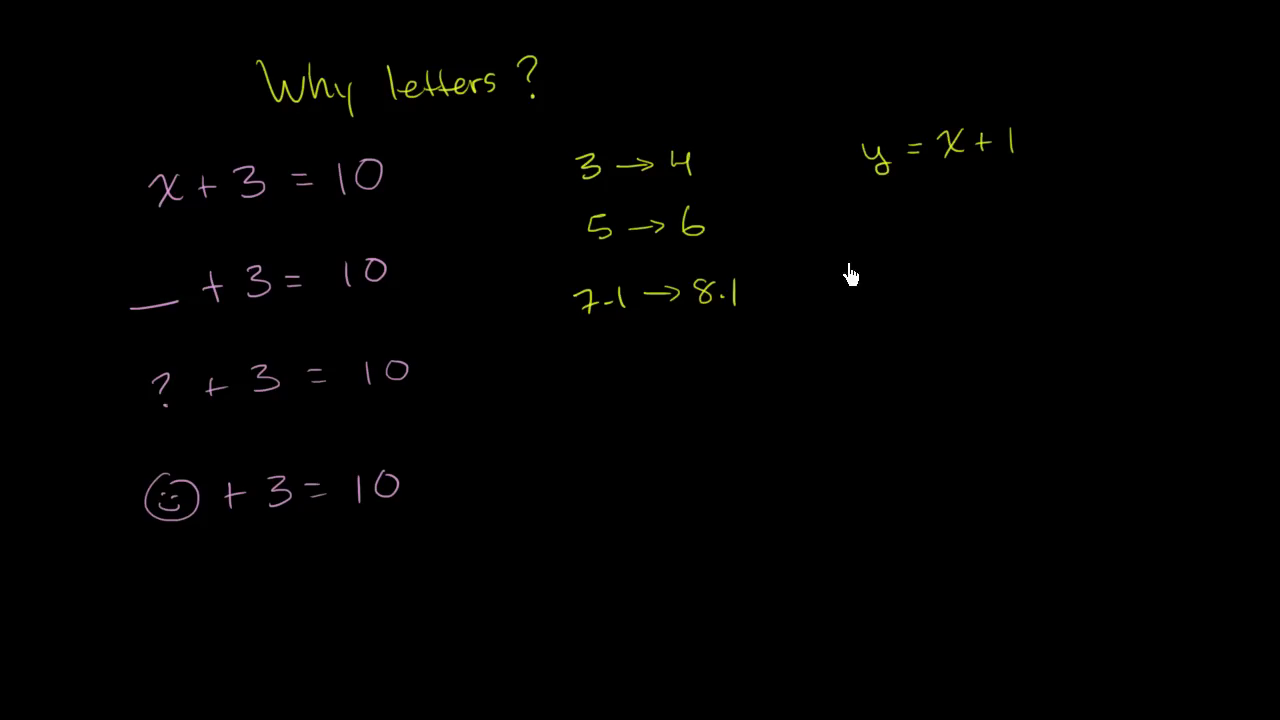 Why letters?
x + 3 = 10
__ + 3 = 10
? + 3 = 10
☺ + 3 = 10
3 → 4
5 → 6
7.1 → 8.1
y = x + 1